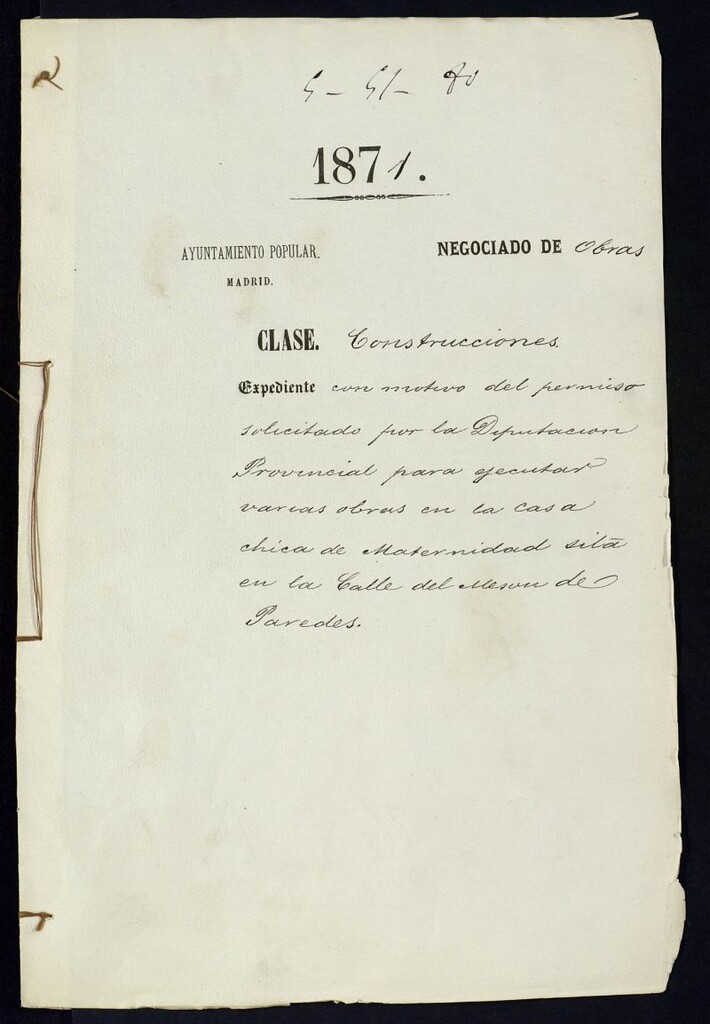 5-51-80
1871.
AYUNTAMIENTO POPULAR.
MADRID.
NEGOCIADO DE Obras
CLASE. Construcciones.
Expediente con motivo del permiso
solicitado por la Diputacion
Provincial para ejecutar
varias obras en la casa
chica de Maternidad sita
en la Calle del Meson de
Paredes.